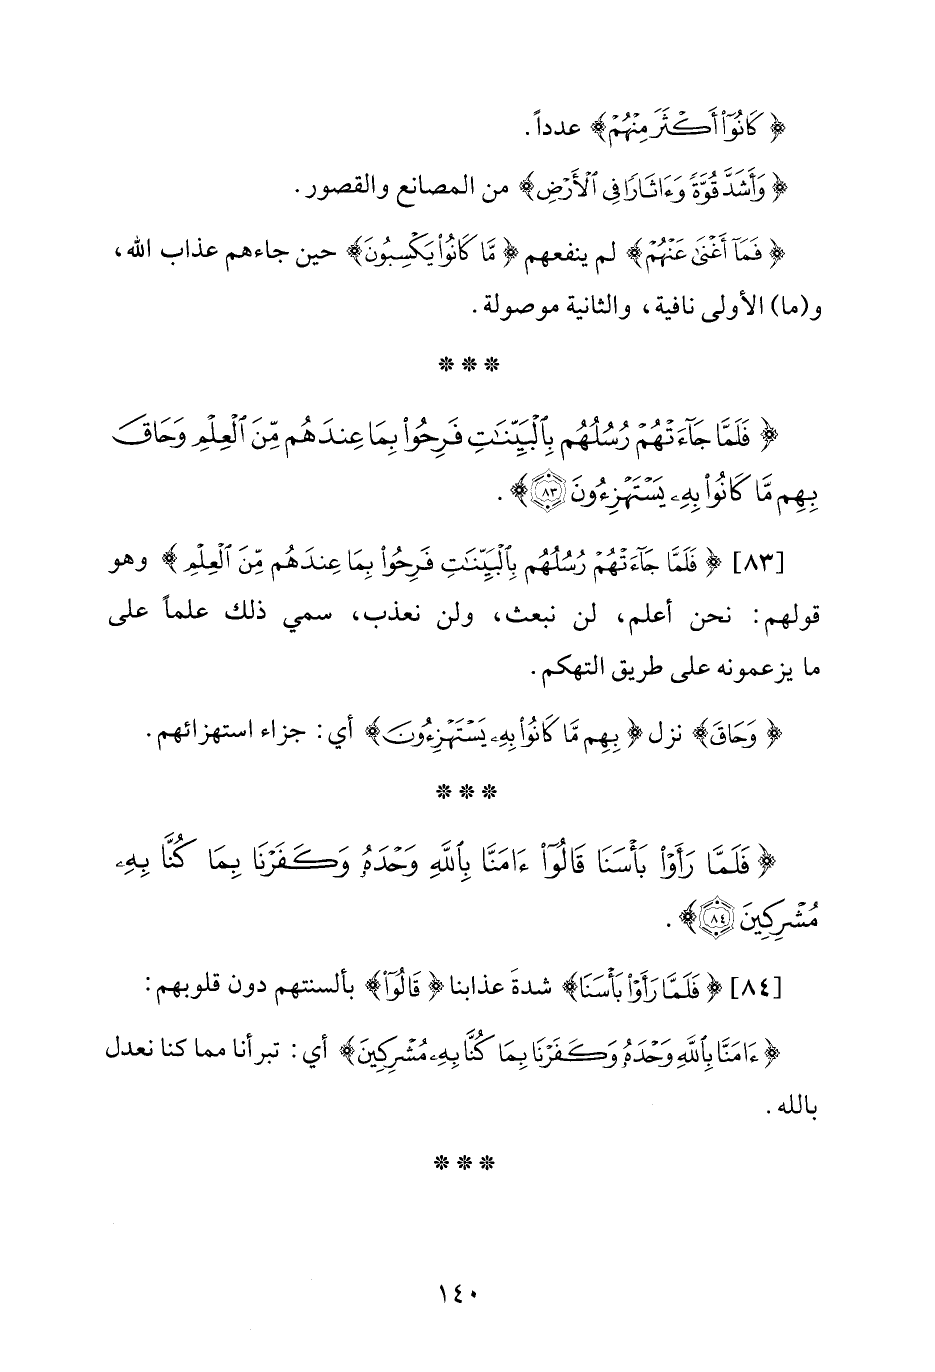 ﴿ كَانُوٓاْ أَكۡثَرَ مِنۡهُمۡ ﴾ عدداً .
﴿ وَأَشَدَّ قُوَّةً وَءَاثَارًا فِى ٱلۡأَرۡضِ ﴾ من المصانع والقصور .
﴿ فَمَآ أَغۡنَىٰ عَنۡهُمۡ ﴾ لم ينفعهم ﴿ مَّا كَانُواْ يَكۡسِبُونَ ﴾ حين جاءهم عذاب الله،
و(ما) الأولى نافية، والثانية موصولة .
* * *
﴿ فَلَمَّا جَآءَتۡهُمۡ رُسُلُهُم بِٱلۡبَيِّنَٰتِ فَرِحُواْ بِمَا عِندَهُم مِّنَ ٱلۡعِلۡمِ وَحَاقَ
بِهِم مَّا كَانُواْ بِهِۦ يَسۡتَهۡزِءُونَ ٨٣ ﴾ .
[٨٣] ﴿ فَلَمَّا جَآءَتۡهُمۡ رُسُلُهُم بِٱلۡبَيِّنَٰتِ فَرِحُواْ بِمَا عِندَهُم مِّنَ ٱلۡعِلۡمِ ﴾ وهو
قولهم: نحن أعلم، لن نبعث، ولن نعذب، سمي ذلك علماً على
ما يزعمونه على طريق التهكم .
﴿ وَحَاقَ ﴾ نزل ﴿ بِهِم مَّا كَانُواْ بِهِۦ يَسۡتَهۡزِءُونَ ﴾ أي: جزاء استهزائهم .
* * *
﴿ فَلَمَّا رَأَوۡاْ بَأۡسَنَا قَالُوٓاْ ءَامَنَّا بِٱللَّهِ وَحۡدَهُۥ وَكَفَرۡنَا بِمَا كُنَّا بِهِۦ
مُشۡرِكِينَ ٨٤ ﴾ .
[٨٤] ﴿ فَلَمَّا رَأَوۡاْ بَأۡسَنَا ﴾ شدةَ عذابنا ﴿ قَالُوٓاْ ﴾ بألسنتهم دون قلوبهم:
﴿ ءَامَنَّا بِٱللَّهِ وَحۡدَهُۥ وَكَفَرۡنَا بِمَا كُنَّا بِهِۦ مُشۡرِكِينَ ﴾ أي: تبرأنا مما كنا نعدل
بالله .
* * *
١٤٠